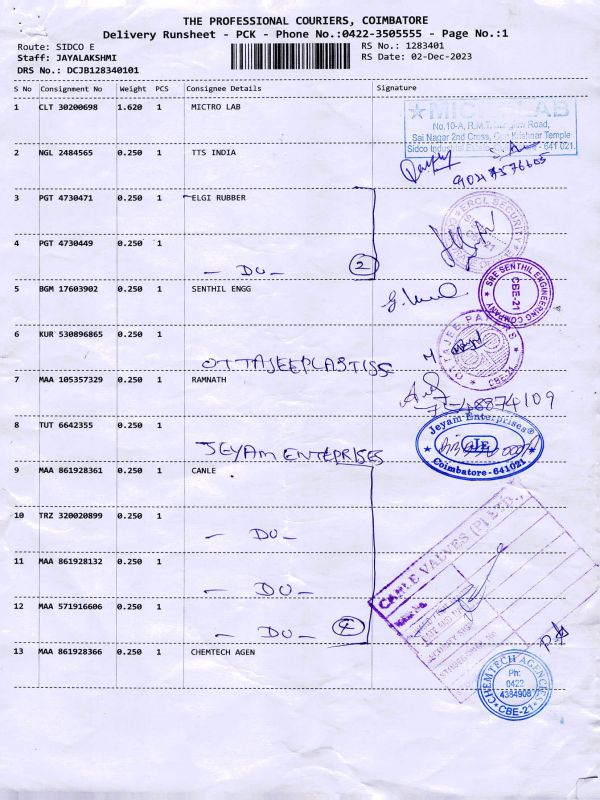 THE PROFESSIONAL COURIERS, COIMBATORE
Delivery Runsheet - PCK - Phone No.:0422-3505555 - Page No.:1
Route: SIDCO E
RS No.: 1283401
Staff: JAYALAKSHMI
RS Date: 02-Dec-2023
DRS No.: DCJB128340101
S No Consignment No Weight PCS Consignee Details Signature
1 CLT 30200698 1.620 1 MICTRO LAB
No.10-A, R.M.T.
Sai Nagar 2nd Cross, Temple
Sidco Industrial - 641 021.
2 NGL 2484565 0.250 1 TTS INDIA
3 PGT 4730471 0.250 1 ELGI RUBBER
4 PGT 4730449 0.250 1
- DO - 2
5 BGM 17603902 0.250 1 SENTHIL ENGG
SRE SENTHIL ENGINEERING COMPANY
CBE-21
6 KUR 530896865 0.250 1
OTTAJEEPLASTISS
CBE-21
7 MAA 105357329 0.250 1 RAMNATH
8 TUT 6642355 0.250 1
JEYAM ENTERPRISES
Jeyam Enterprises®
JE
Coimbatore - 641021
9 MAA 861928361 0.250 1 CANLE
10 TRZ 320020899 0.250 1
- DO -
11 MAA 861928132 0.250 1
- DO -
12 MAA 571916606 0.250 1
- DO - 4
CANLE VALVES (P) LTD.,
13 MAA 861928366 0.250 1 CHEMTECH AGEN
CHEMTECH AGENCIES
Ph:
0422
CBE-21